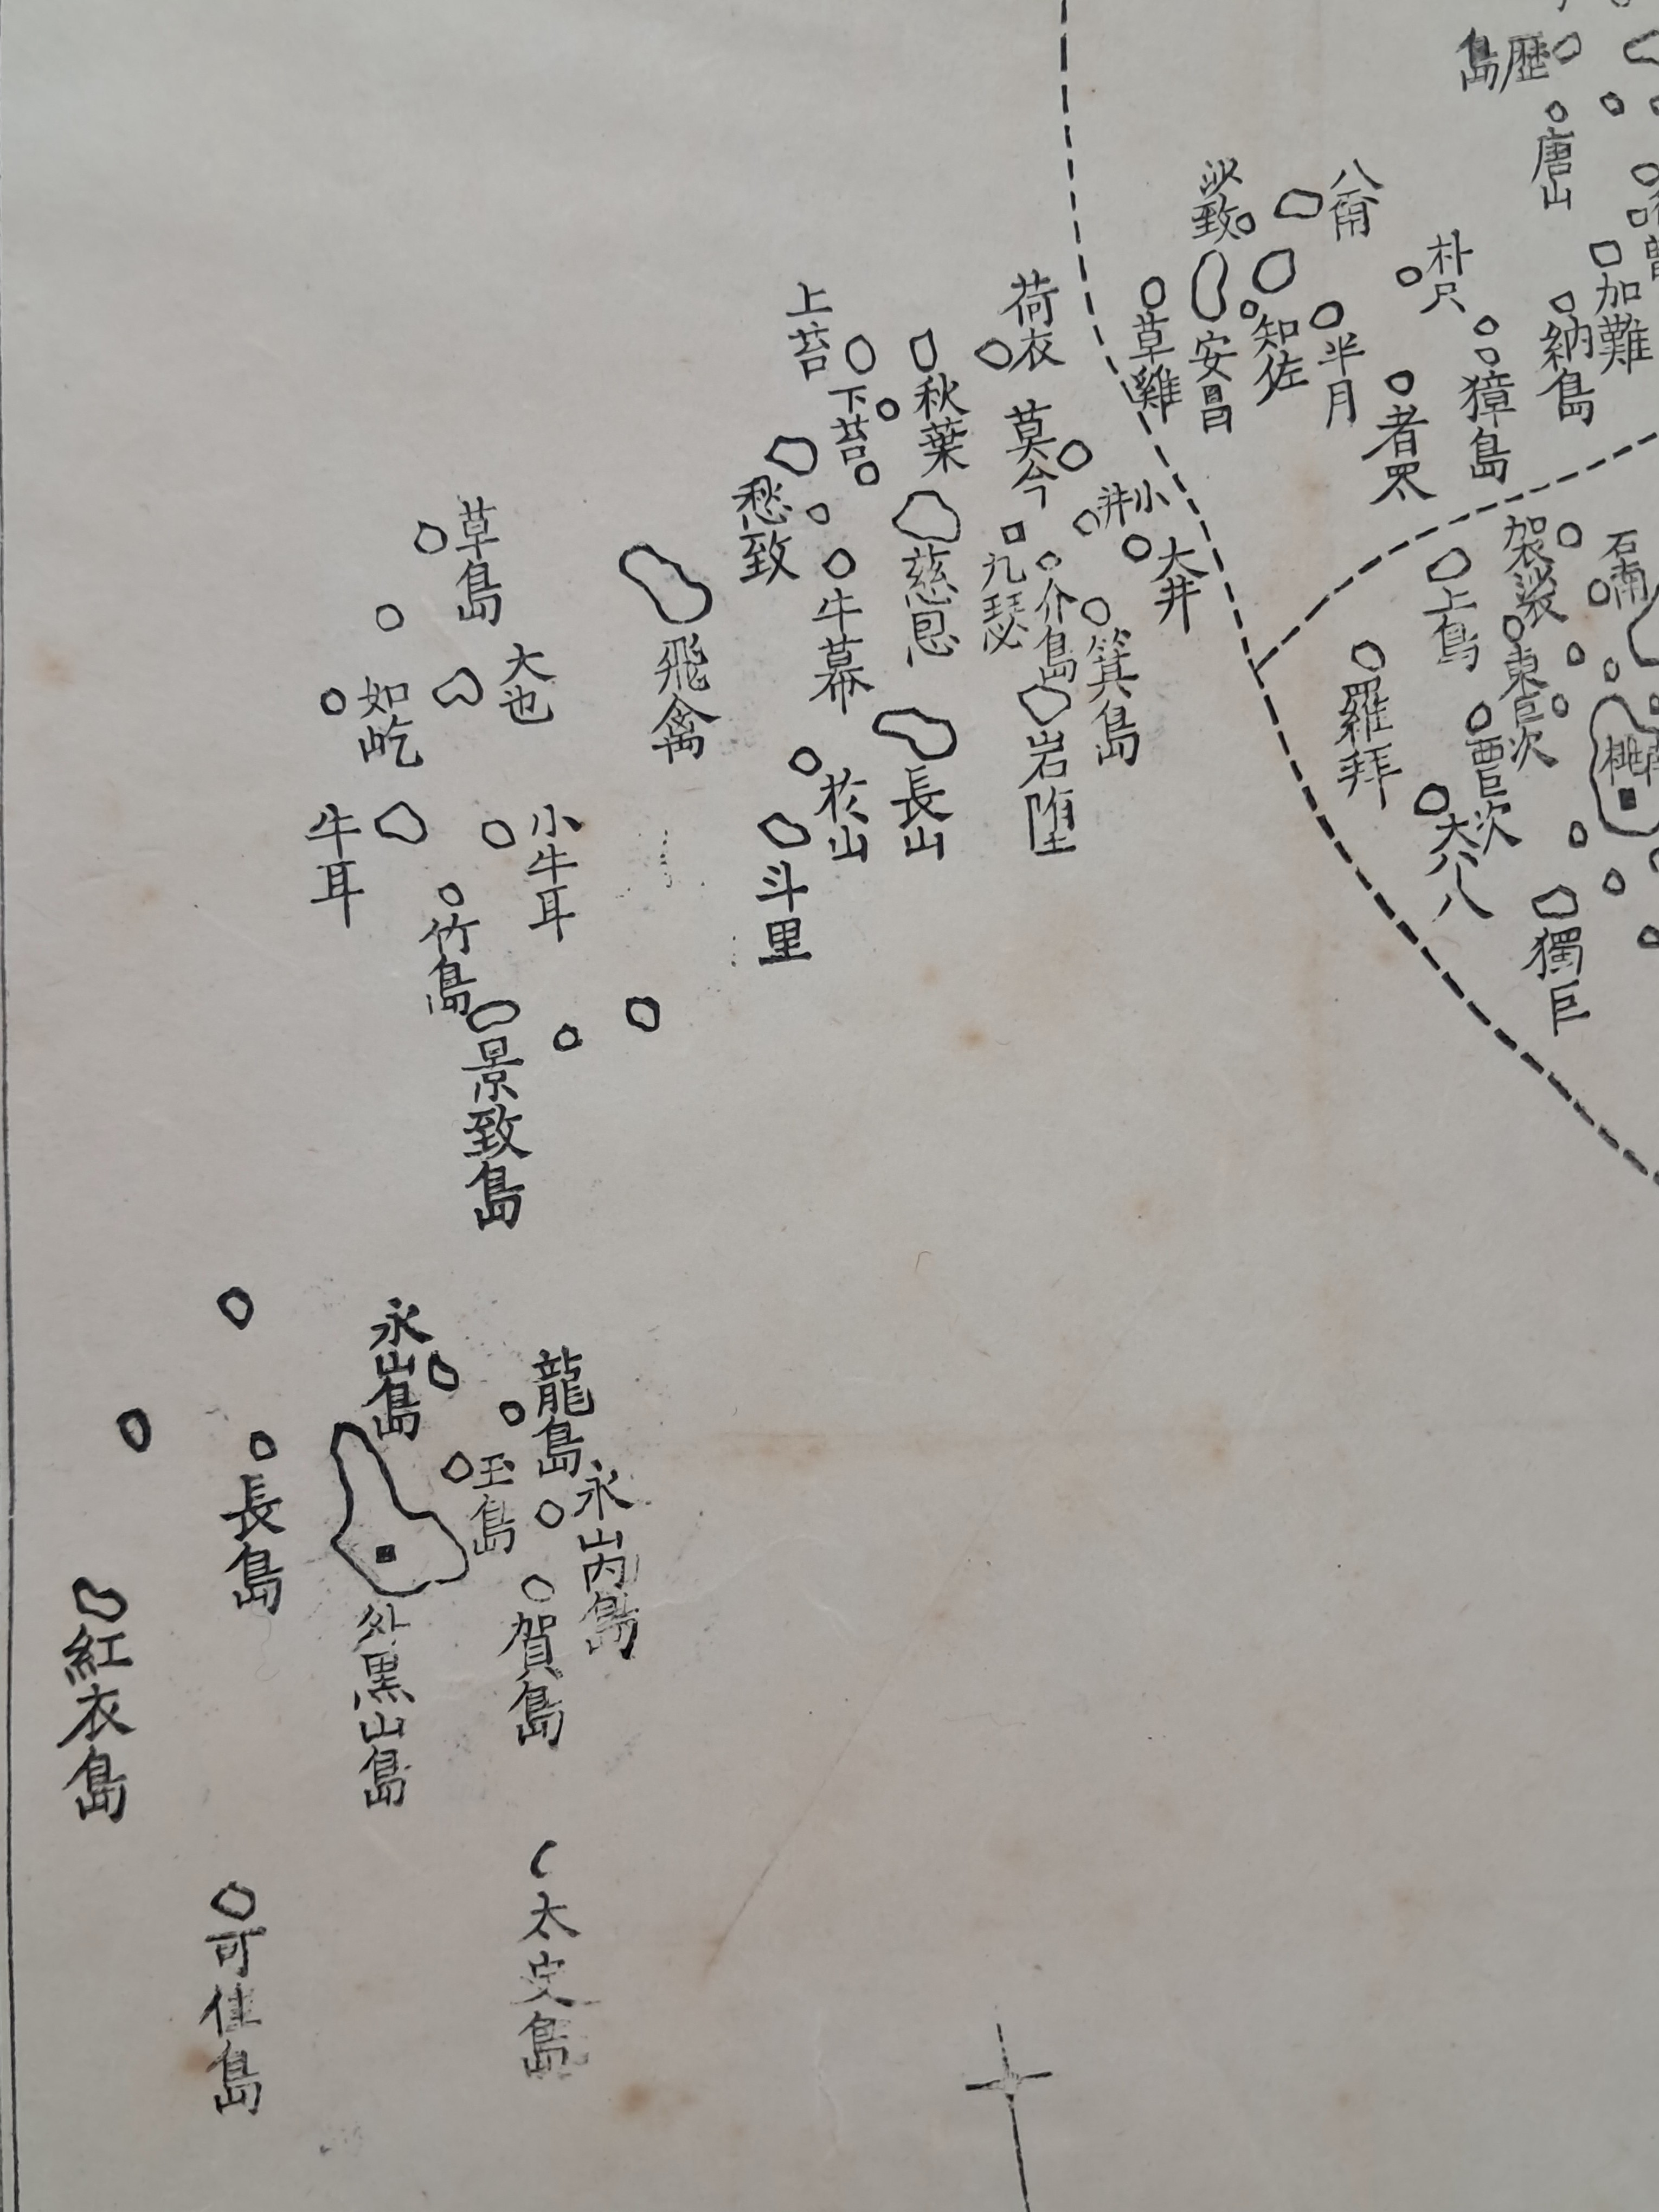 歷島
唐山
八甭
沙致
朴只
加難
納島
獐島
者罒大
半月
知佐
安昌
草雞
荷衣
上苔
下苔
秋葉
莫今
小井
大井
箕島
介島
九瑟
慈恩
愁致
牛幕
飛禽
長山
岩墮
斗里
草島
大也
如屹
牛耳
小牛耳
竹島
景致島
石南
袈裟
上島
東巨次
西巨次
羅拜
大八八
獨巨
永山島
龍島
玉島
永山內島
長島
外黑山島
賀島
紅衣島
可佳島